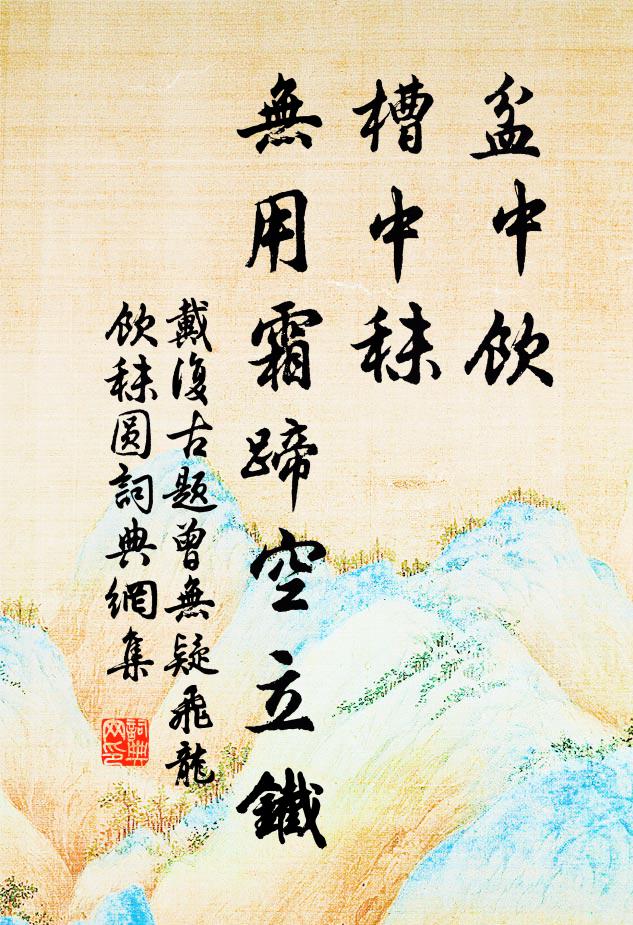 盆中飲
槽中秣
無用霜蹄空立鐵
戴復古題曾無疑飛龍
飲秣圓詞典網集
詞典網印